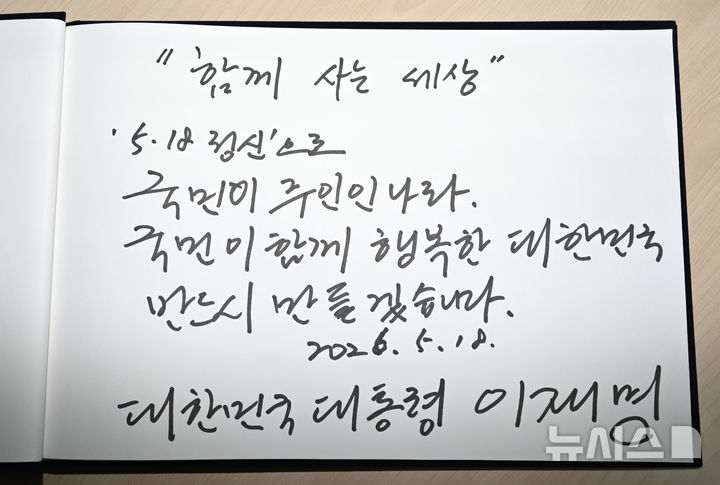 "함께 사는 세상"
'5.18 정신'으로
국민이 주인인 나라.
국민이 함께 행복한 대한민국
반드시 만들겠습니다.
2026. 5. 18.
대한민국 대통령 이재명
뉴시스